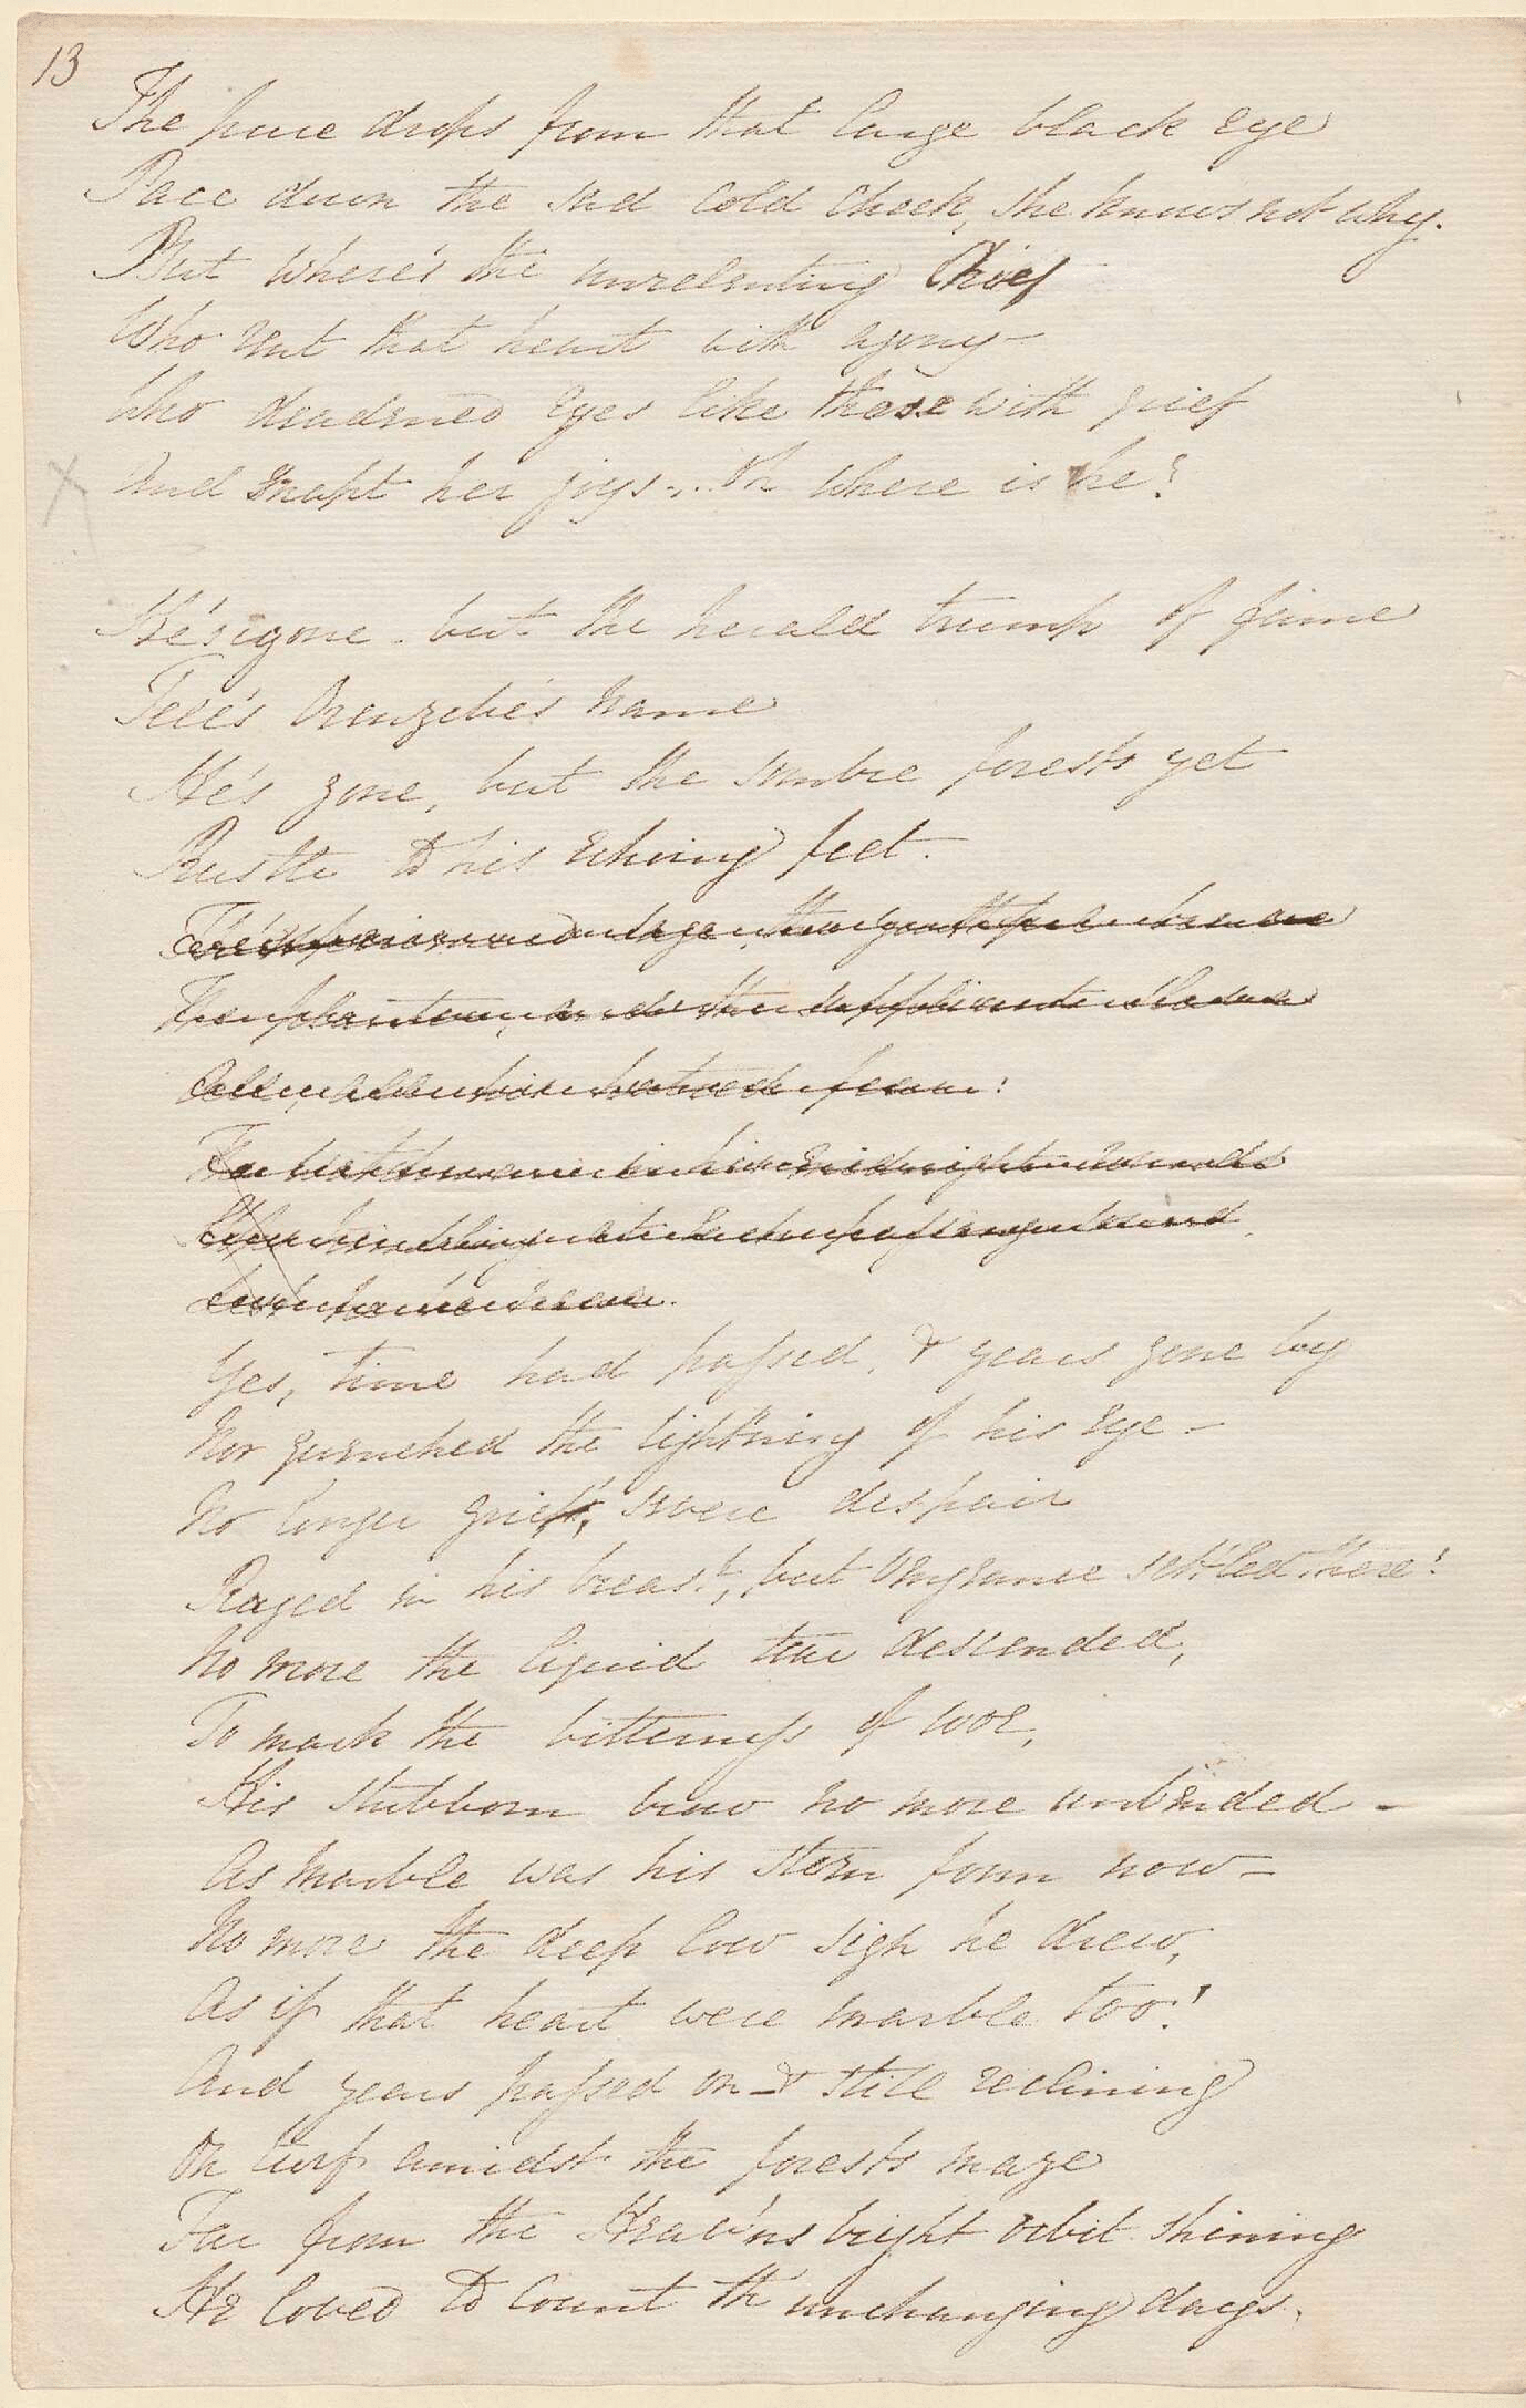 13
The pure drops from that large black eye
Pace down the sad cold cheek, she knows not why.
But where's the unrelenting Chief
Who rent that heart with agony—
Who deadened eyes like those with grief
And snapt her joys... Oh where is he?
He's gone. but the herald trump of fame
Tell's Orenzebe's name
He's gone, but the sombre forests yet
Rustle to his echoing feet.
The
The phantom, and the suppliant slave
All, all his hatred fear:
The in his midnight rounds
at each passing sound
Yes, time had passed, & years gone by
Nor quenched the lightning of his eye—
No longer grief, severe despair
Raged in his breast, but vengeance settled there!
No more the liquid tear descended,
To mark the bitterness of woe,
His stubborn brow no more unbended—
As marble was his stern form now—
No more the deep low sigh he drew,
As if that heart were marble too!
And years passed on — & still reclining
On turf amidst the forests maze
Far from the Heav'ns bright orbit shining
He loved to count th' unchanging days.